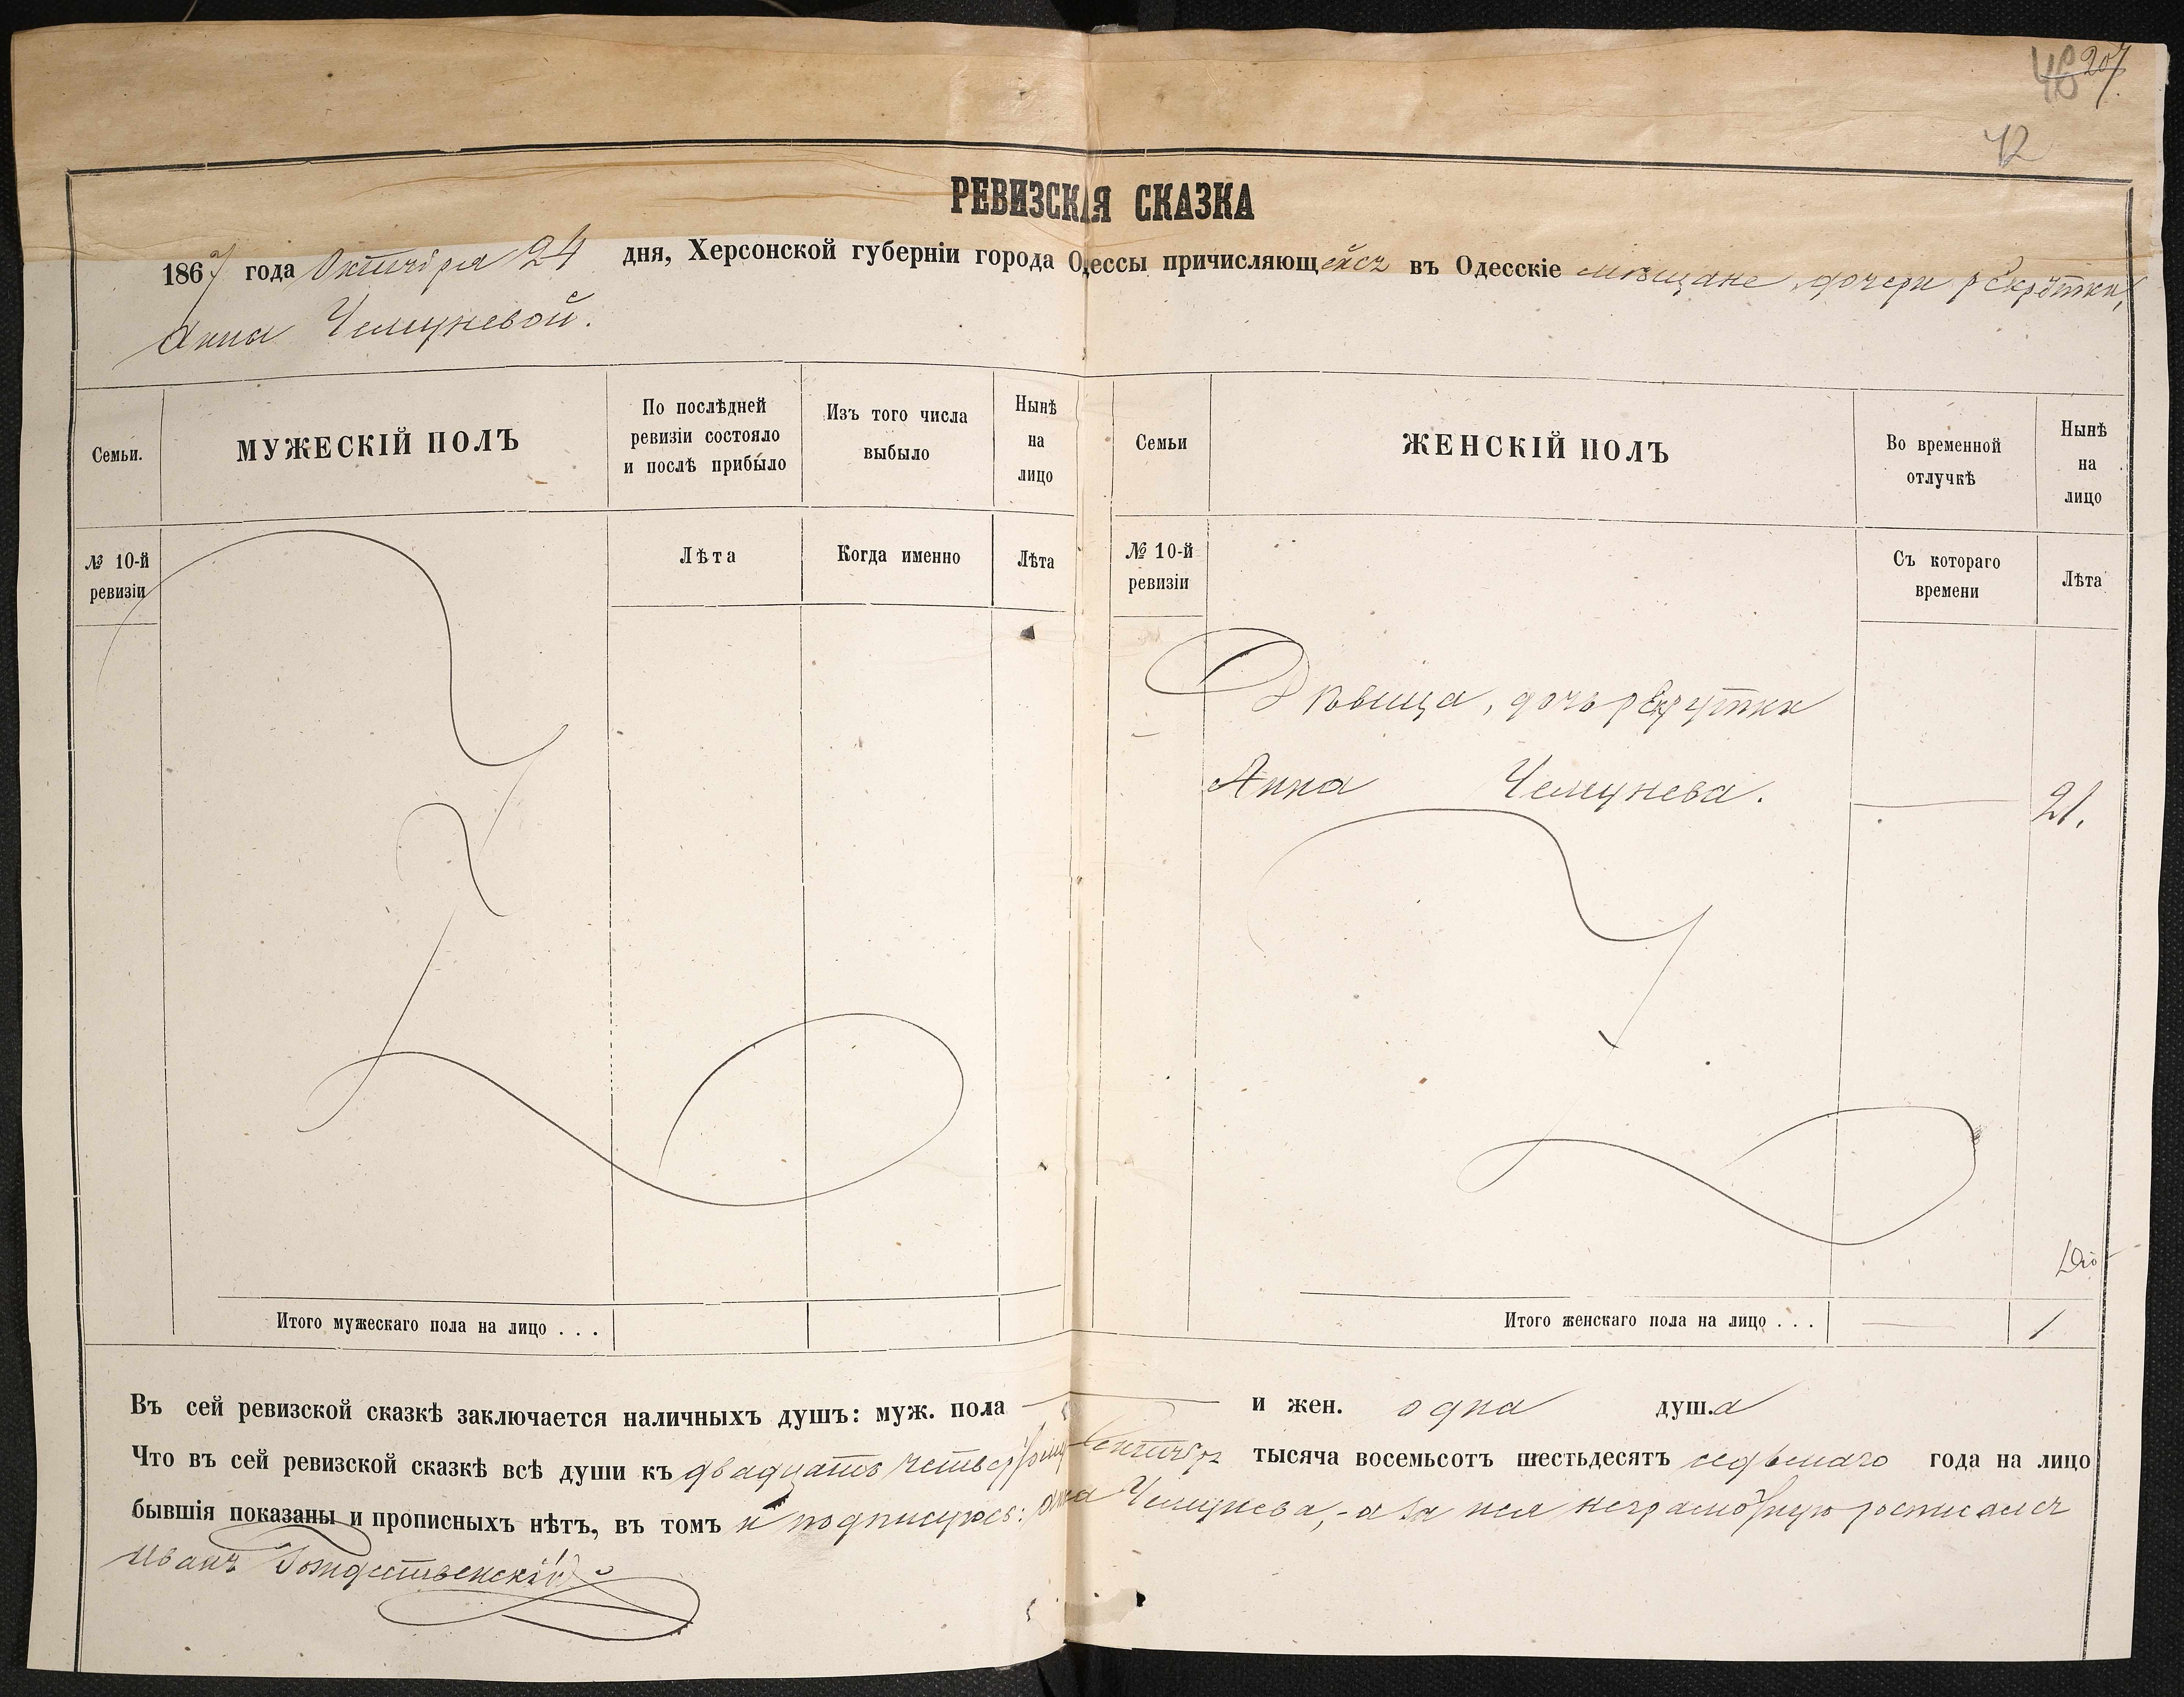 46 207
42
РЕВИЗСКАЯ СКАЗКА
1867 года Октября 24 дня, Херсонской губернiи города Одессы причисляющейся въ Одесскiе мѣщане, дочери рекрутки,
Анны Чемуневой.
Семьи.
МУЖЕСКIЙ ПОЛЪ
По послѣдней
ревизiи состояло
и послѣ прибыло
Изъ того числа
выбыло
Нынѣ
на
лицо
Семьи
ЖЕНСКIЙ ПОЛЪ
Во временной
отлучкѣ
Нынѣ
на
лицо
№ 10-й
ревизiи
Лѣта
Когда именно
Лѣта
№ 10-й
ревизiи
Съ котораго
времени
Лѣта
Дѣвица, дочь рекрутки
Анна Чемунева.
21.
Итого мужескаго пола на лицо . . .
Итого женскаго пола на лицо . . . 1
Въ сей ревизской сказкѣ заключается наличныхъ душъ: муж. пола — и жен. одна душ.а
Что въ сей ревизской сказкѣ всѣ души къ двадцать четвертому Октября тысяча восемьсотъ шестьдесятъ седьмаго года на лицо
бывшiя показаны и прописныхъ нѣтъ, въ томъ и подписуюсь: Анна Чемунева, - а за нея неграмотную росписался
Иванъ Рождественскiй